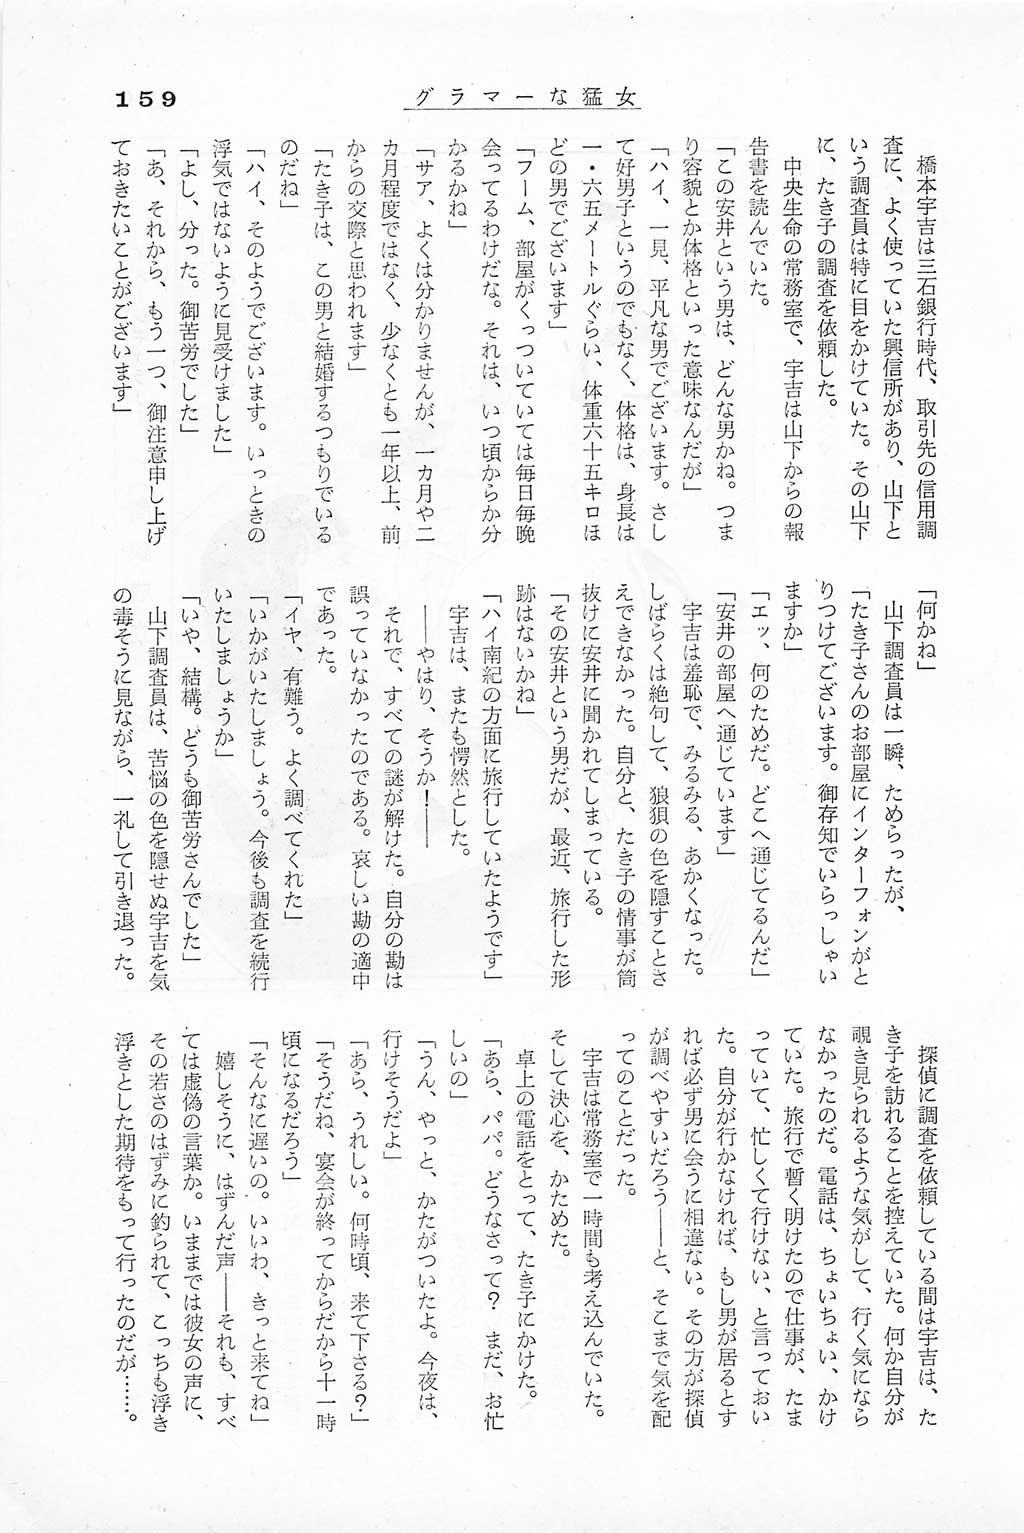 159
グラマーな猛女
橋本宇吉は三石銀行時代、取引先の信用調
査に、よく使っていた興信所があり、山下と
いう調査員は特に目をかけていた。その山下
に、たき子の調査を依頼した。
中央生命の常務室で、宇吉は山下からの報
告書を読んでいた。
「この安井という男は、どんな男かね。つま
り容貌とか体格といった意味なんだが」
「ハイ、一見、平凡な男でございます。さし
て好男子というのでもなく、体格は、身長は
一・六五メートルぐらい、体重六十五キロほ
どの男でございます」
「フーム、部屋がくっついていては毎日毎晩
会ってるわけだな。それは、いつ頃からか分
かるかね」
「サア、よくは分かりませんが、一カ月や二
カ月程度ではなく、少なくとも一年以上、前
からの交際と思われます」
「たき子は、この男と結婚するつもりでいる
のだね」
「ハイ、そのようでございます。いっときの
浮気ではないように見受けました」
「よし、分った。御苦労でした」
「あ、それから、もう一つ、御注意申し上げ
ておきたいことがございます」
「何かね」
山下調査員は一瞬、ためらったが、
「たき子さんのお部屋にインターフォンがと
りつけてございます。御存知でいらっしゃい
ますか」
「エッ、何のためだ。どこへ通じてるんだ」
「安井の部屋へ通じています」
宇吉は羞恥で、みるみる、あかくなった。
しばらくは絶句して、狼狽の色を隠すことさ
えできなかった。自分と、たき子の情事が筒
抜けに安井に聞かれてしまっている。
「その安井という男だが、最近、旅行した形
跡はないかね」
「ハイ南紀の方面に旅行していたようです」
宇吉は、またも愕然とした。
――やはり、そうか！――
それで、すべての謎が解けた。自分の勘は
誤っていなかったのである。哀しい勘の適中
であった。
「イヤ、有難う。よく調べてくれた」
「いかがいたしましょう。今後も調査を続行
いたしましょうか」
「いや、結構。どうも御苦労さんでした」
山下調査員は、苦悩の色を隠せぬ宇吉を気
の毒そうに見ながら、一礼して引き退った。
探偵に調査を依頼している間は宇吉は、た
き子を訪れることを控えていた。何か自分が
覗き見られるような気がして、行く気になら
なかったのだ。電話は、ちょいちょい、かけ
ていた。旅行で暫く明けたので仕事が、たま
っていて、忙しくて行けない、と言っておい
た。自分が行かなければ、もし男が居るとす
れば必ず男に会うに相違ない。その方が探偵
が調べやすいだろう――と、そこまで気を配
ってのことだった。
宇吉は常務室で一時間も考え込んでいた。
そして決心を、かためた。
卓上の電話をとって、たき子にかけた。
「あら、パパ。どうなさって？　まだ、お忙
しいの」
「うん、やっと、かたがついたよ。今夜は、
行けそうだよ」
「あら、うれしい。何時頃、来て下さる？」
「そうだね、宴会が終ってからだから十一時
頃になるだろう」
「そんなに遅いの。いいわ、きっと来てね」
嬉しそうに、はずんだ声――それも、すべ
ては虚偽の言葉か。いままでは彼女の声に、
その若さのはずみに釣られて、こっちも浮き
浮きとした期待をもって行ったのだが……。